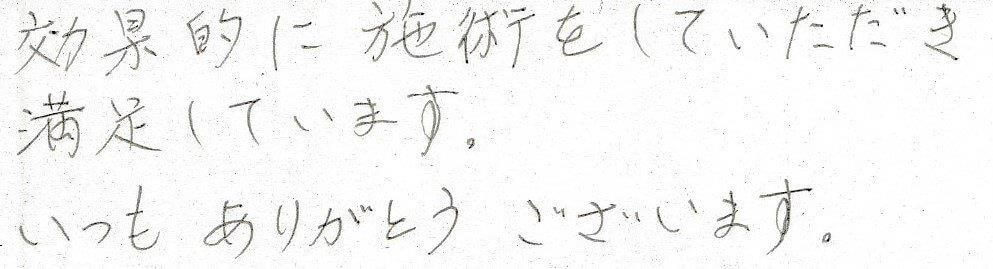 効果的に施術をしていただき
満足しています。
いつもありがとうございます。